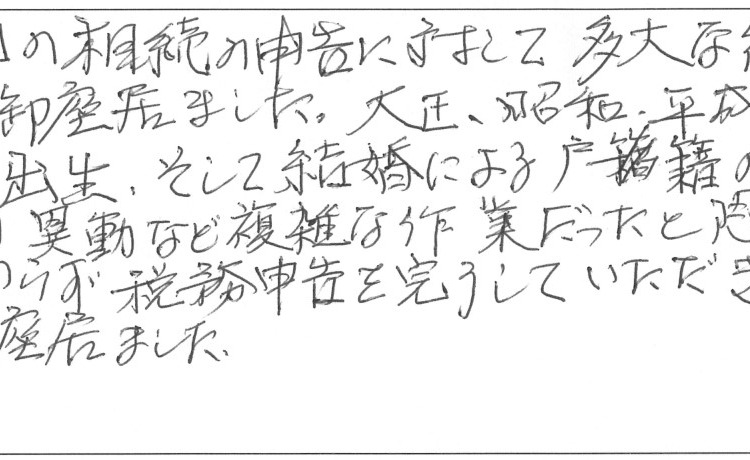 の相続の申告に対して多大な
御座居ました。大正、昭和、平成
出生、そして結婚による戸籍籍の
異動など複雑な作業だったと
わらず税務申告を完うしていただき
座居ました。